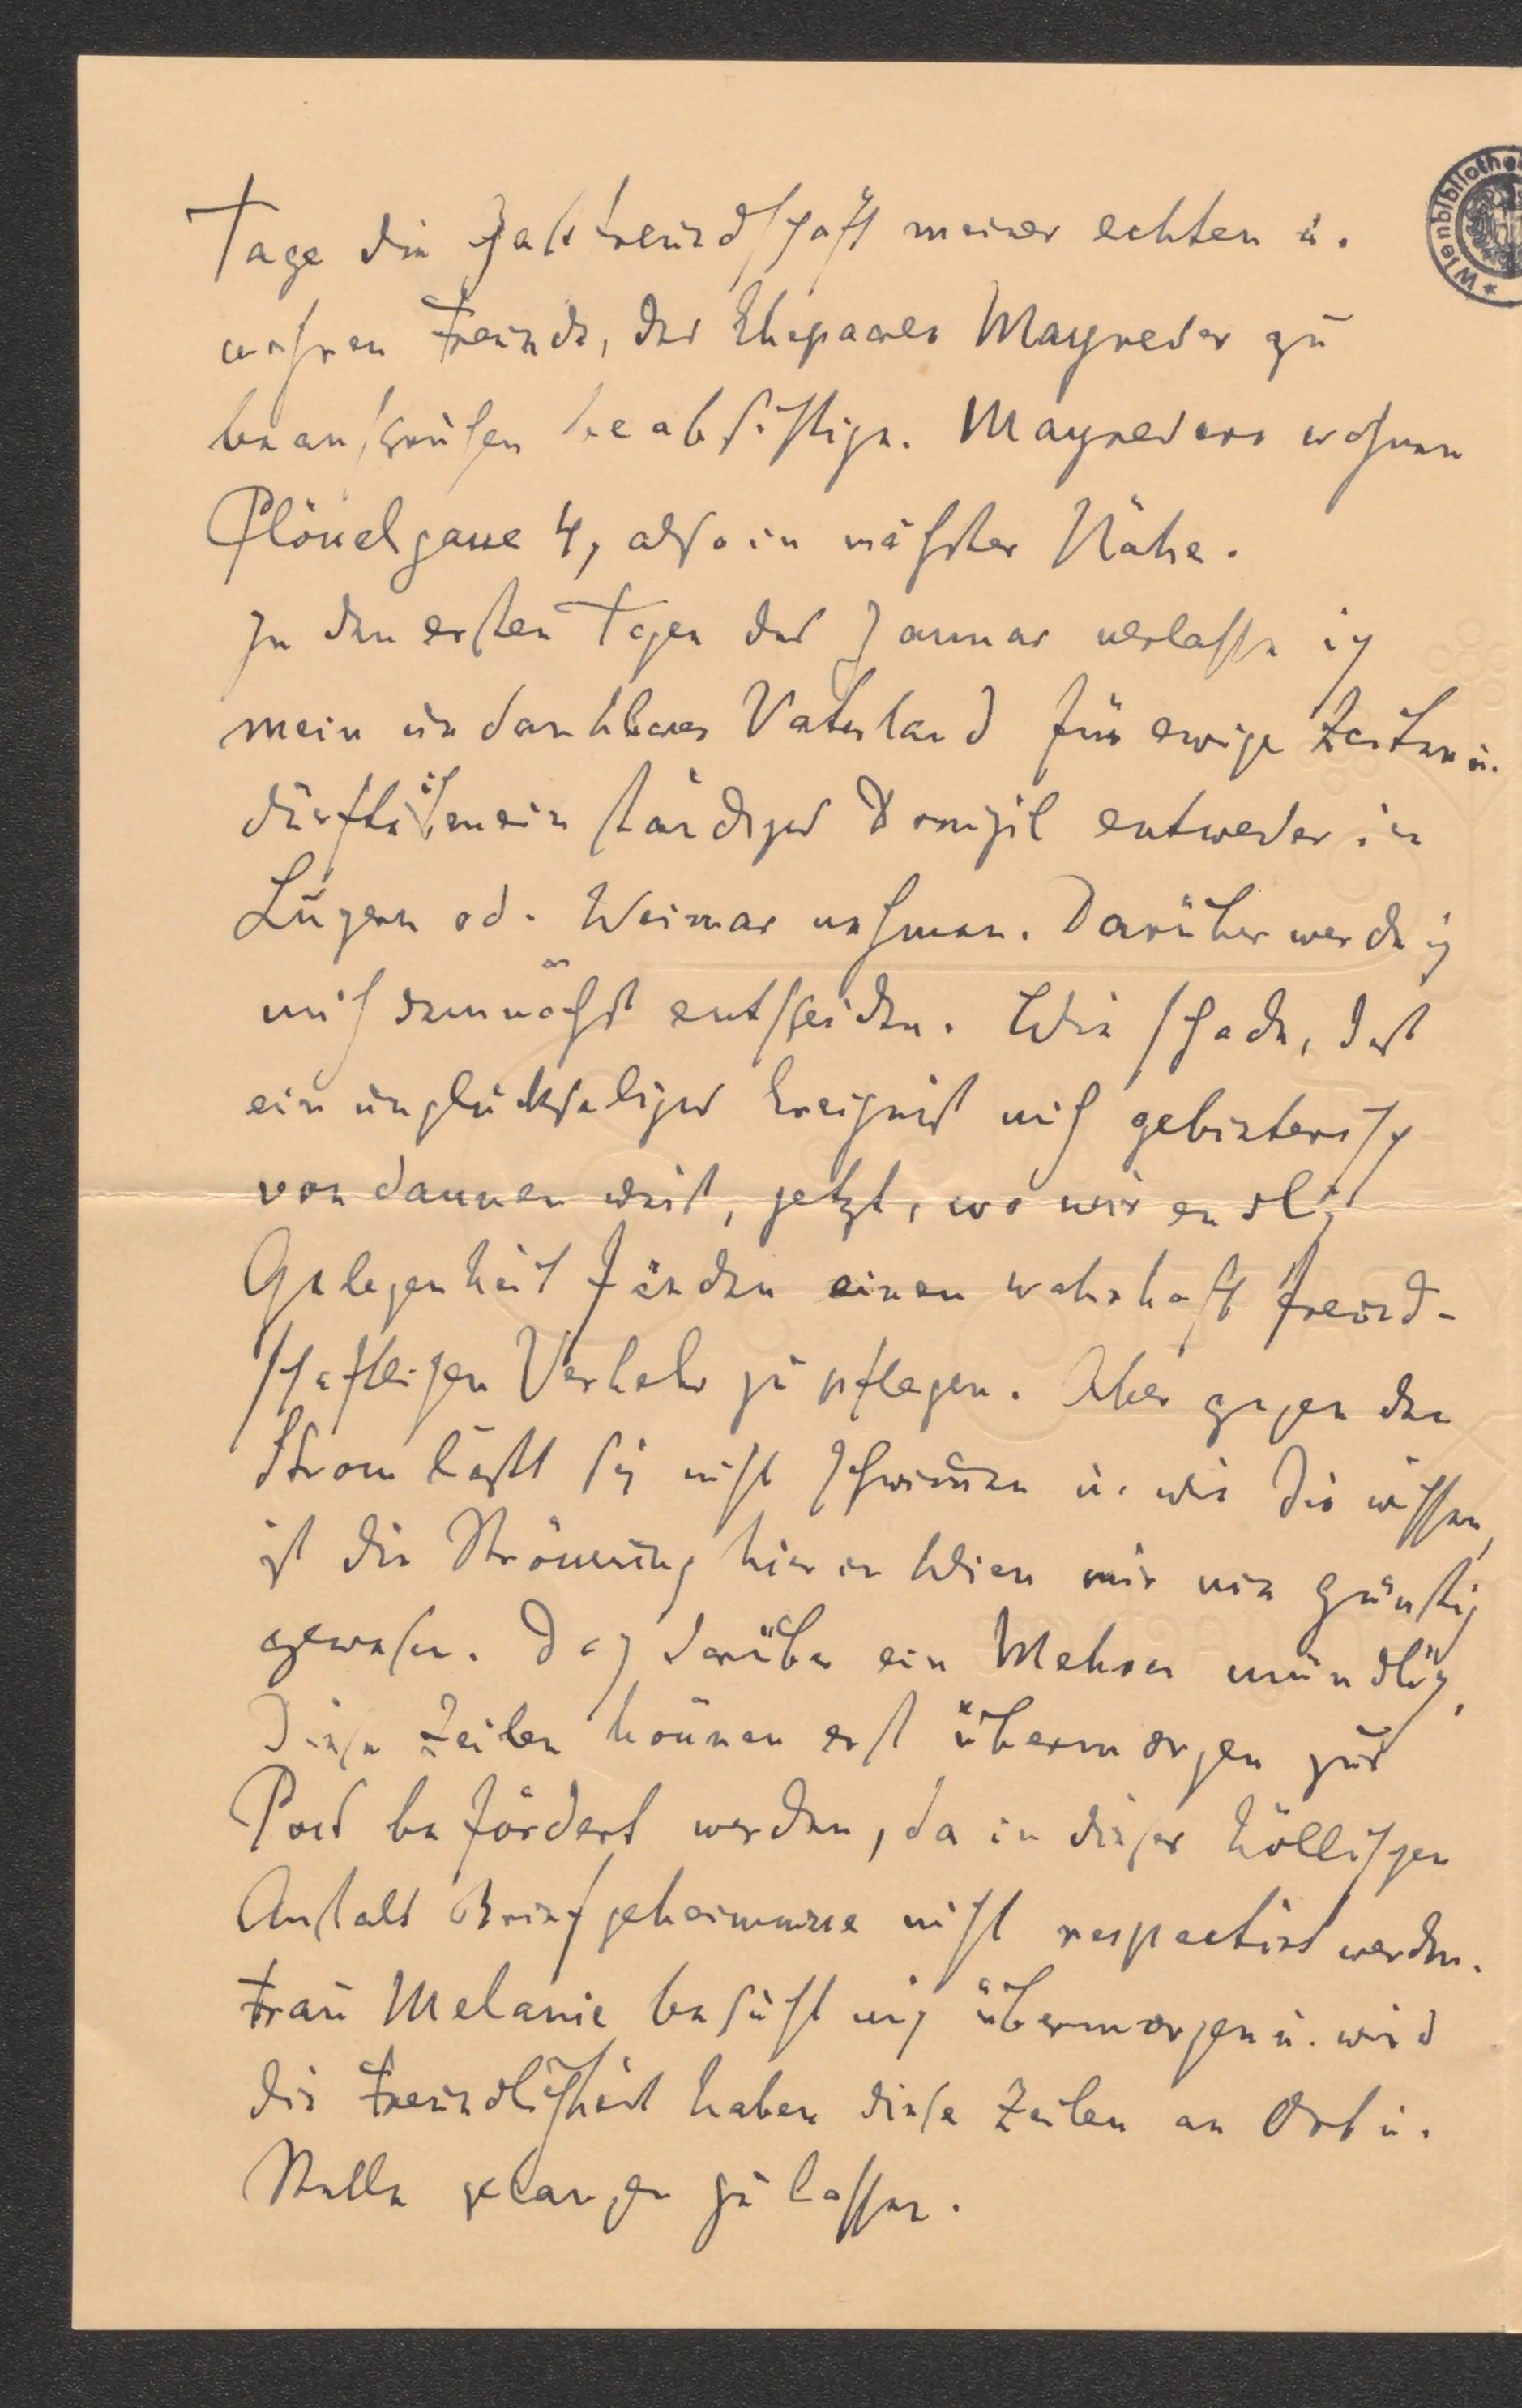 Tage die Gastfreundschaft meiner echten u.
wahren Freunde, des Ehepaares Mayreder zu
beanspruchen beabsichtige. Mayreders wohnen
Plösselgasse 4, also in nächster Nähe.
In den ersten Tagen des Jannar verlasse ich
mein undankbares Vaterland für ewige Zeiten u.
dürfte ich mein ständiges Domizil entweder in
Luzern od. Weimar nehmen. Darüber werde ich
mich demnächst entscheiden. Wie schade, dass
ein unglückseliges Ereigniss mich gebieterisch
von dannen weist, jetzt, wo wir endlich
Gelegenheit fänden einen wahrhaft freund-
schaftlichen Verkehr zu pflegen. Aber gegen den
Strom lässt sich nicht schwimmen u. wie Sie wissen,
ist die Strömung hier in Wien mir nie günstig
gewesen. Doch darüber ein Mehres mündlich,
Diese Zeilen können erst übermorgen zur
Post befördert werden, da in dieser höllischen
Anstalt Briefgeheimnisse nicht respectirt werden.
Frau Melanie besucht mich übermorgen u. wird
die Freundlichkeit haben diese Zeilen an Ort u.
Stelle gelangen zu lassen.
Wienbibliothek